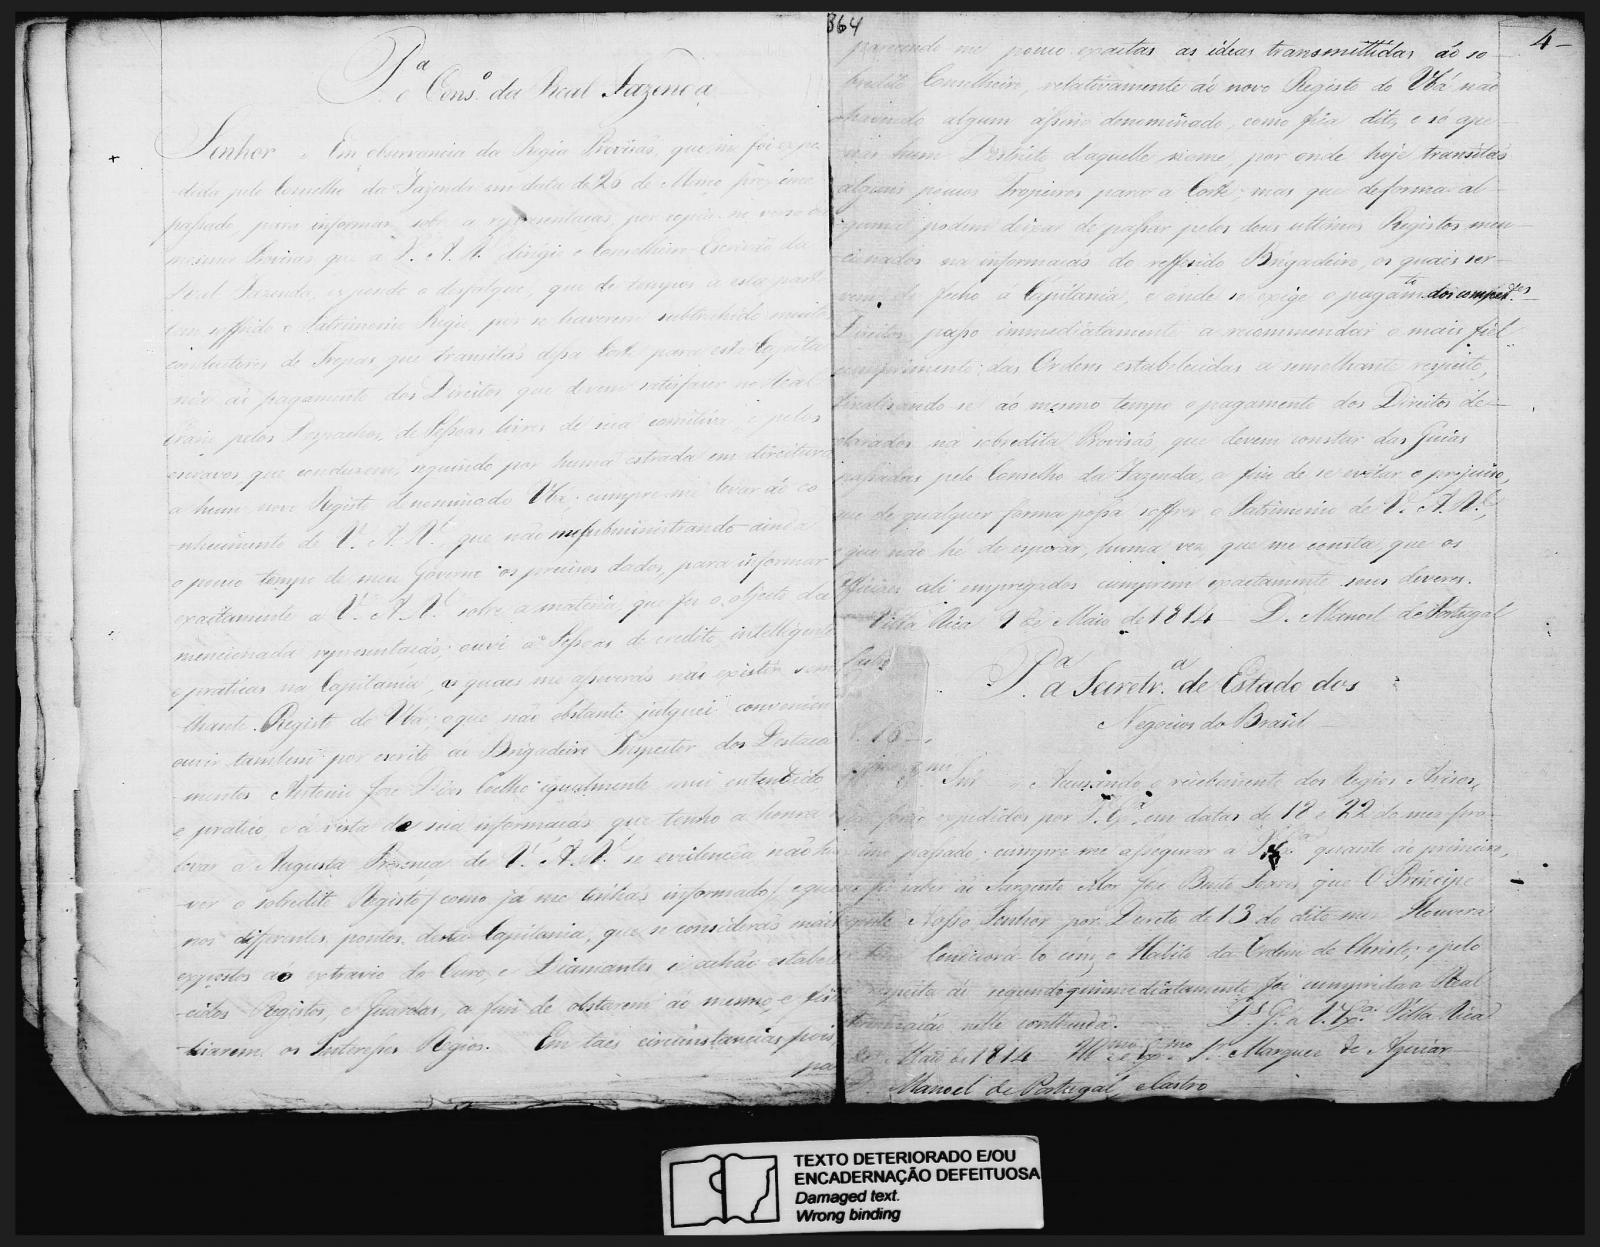 P.ª o Cons.º da Real Fazenda
Senhor = Em observancia da Regia Provisaõ, que me foi expe-
-dida pelo Conselho da Fazenda em data de 20 de Março proximo
passado, para informar sobre a representaçaõ, por copia no verso da
mesma Provisaõ que a V. A. R. dirigio o Conselheiro Escrivaõ da
Real Fazenda, expondo o desfalque, que de tempos a esta parte
tem soffrido o Patrimonio Regio, por se haverem subtrahido muitos
conductores de Tropas que transitaõ dessa Corte para esta Capita-
-nia ao pagamento dos Direitos que devem satisfazer no Real
Erario pelos Despachos, de Pessoas livres de sua comitiva, e pelos
escravos que conduzem, seguindo por huma estrada em direitura
a hum novo Registo denominado Ubá; cumpre-me levar ao co-
-nhecimento de V. A. R., que naõ me subministrando ainda
o pouco tempo de meu Governo os precisos dados, para informar
exactamente a V. A. R. sobre a materia, que foi o objecto da
mencionada representaçaõ; ouvi a Pessoas de credito, intelligentes
e praticas na Capitania, as quaes me asseveraõ naõ existir seme-
-lhante Registo de Ubá; o que naõ obstante julguei conveniente
ouvir tambem por escrito ao Brigadeiro Inspector dos Destaca-
-mentos Antonio José Dias Coelho igualmente mui entendido
e pratico, e á vista da sua informaçaõ, que tenho a honra
levar á Augusta Presença de V. A. R. se evidenceia naõ ha-
-ver o sobredito Registo / como já me tinhaõ informado / e que
nos differentes pontos desta Capitania, que se consideraõ mais
expostos ao extravio do Ouro, e Diamantes se achaõ estabele-
-cidos Registos, e Guardas, a fim de obstarem ao mesmo, e fis-
-calisarem os Interesses Regios. Em taes circunstancias pois
pa
364
4-
parecendo me pouco exactas as ideas transmittidas ao so-
-bredito Conselheiro, relativamente ao novo Registo do Ubá naõ
havendo algum assim denominado, como fica dito, e só ape-
-nas hum Districto d'aquelle nome, por onde hoje transitaõ
alguns poucos Tropeiros para a Corte; mas que de forma al-
-guma podem deixar de passar pelos dous ultimos Registos men-
-cionados na informaçaõ do refferido Brigadeiro, os quaes ser-
-vem de fecho á Capitania, e onde se exige o pagam.to dos compet.des
Direitos, passo immediatamente a recommendar o mais fiel
cumprimento das Ordens estabelecidas a semelhante respeito,
fiscalisando-se ao mesmo tempo o pagamento dos Direitos de-
-clarados na sobredita Provisaõ, que devem constar das Guias
passadas pelo Conselho da Fazenda, a fim de se evitar o prejuiso,
que de qualquer forma possa soffrer o Patrimonio de V. A. R.,
o que naõ hé de esperar, huma vez que me consta que os
Officiaes ali empregados cumprem exactamente seus deveres.
Villa Rica 1 de Maio de 1814 D. Manoel de Portugal
Castro
P.ª a Secretr.ª de Estado dos
Negocios do Brasil
Snr = Accusando o recebimento dos Regios Avisos,
expedidos por V. Ex.ª em datas de 18 e 22 do mez pro-
ximo passado: cumpre-me assegurar a V. Ex.ª quanto ao primeiro,
que fiz saber ao Sargento Mor José Bento Soares, que O Principe
Regente Nosso Senhor por Decreto de 13 do dito mez Houvera
Condecorá-lo com o Habito da Ordem de Christo; e pelo
respeita ao segundo que immediatamente foi cumprida a Real
Determinaçaõ nelle conthiuda. D.s G.e a V. Ex.ª Villa Rica
Maio de 1814 Ill.mo e Ex.mo S. Marquez de Aguiar
D. Manoel de Portugal, e Castro
TEXTO DETERIORADO E/OU
ENCADERNAÇÃO DEFEITUOSA
Damaged text.
Wrong binding